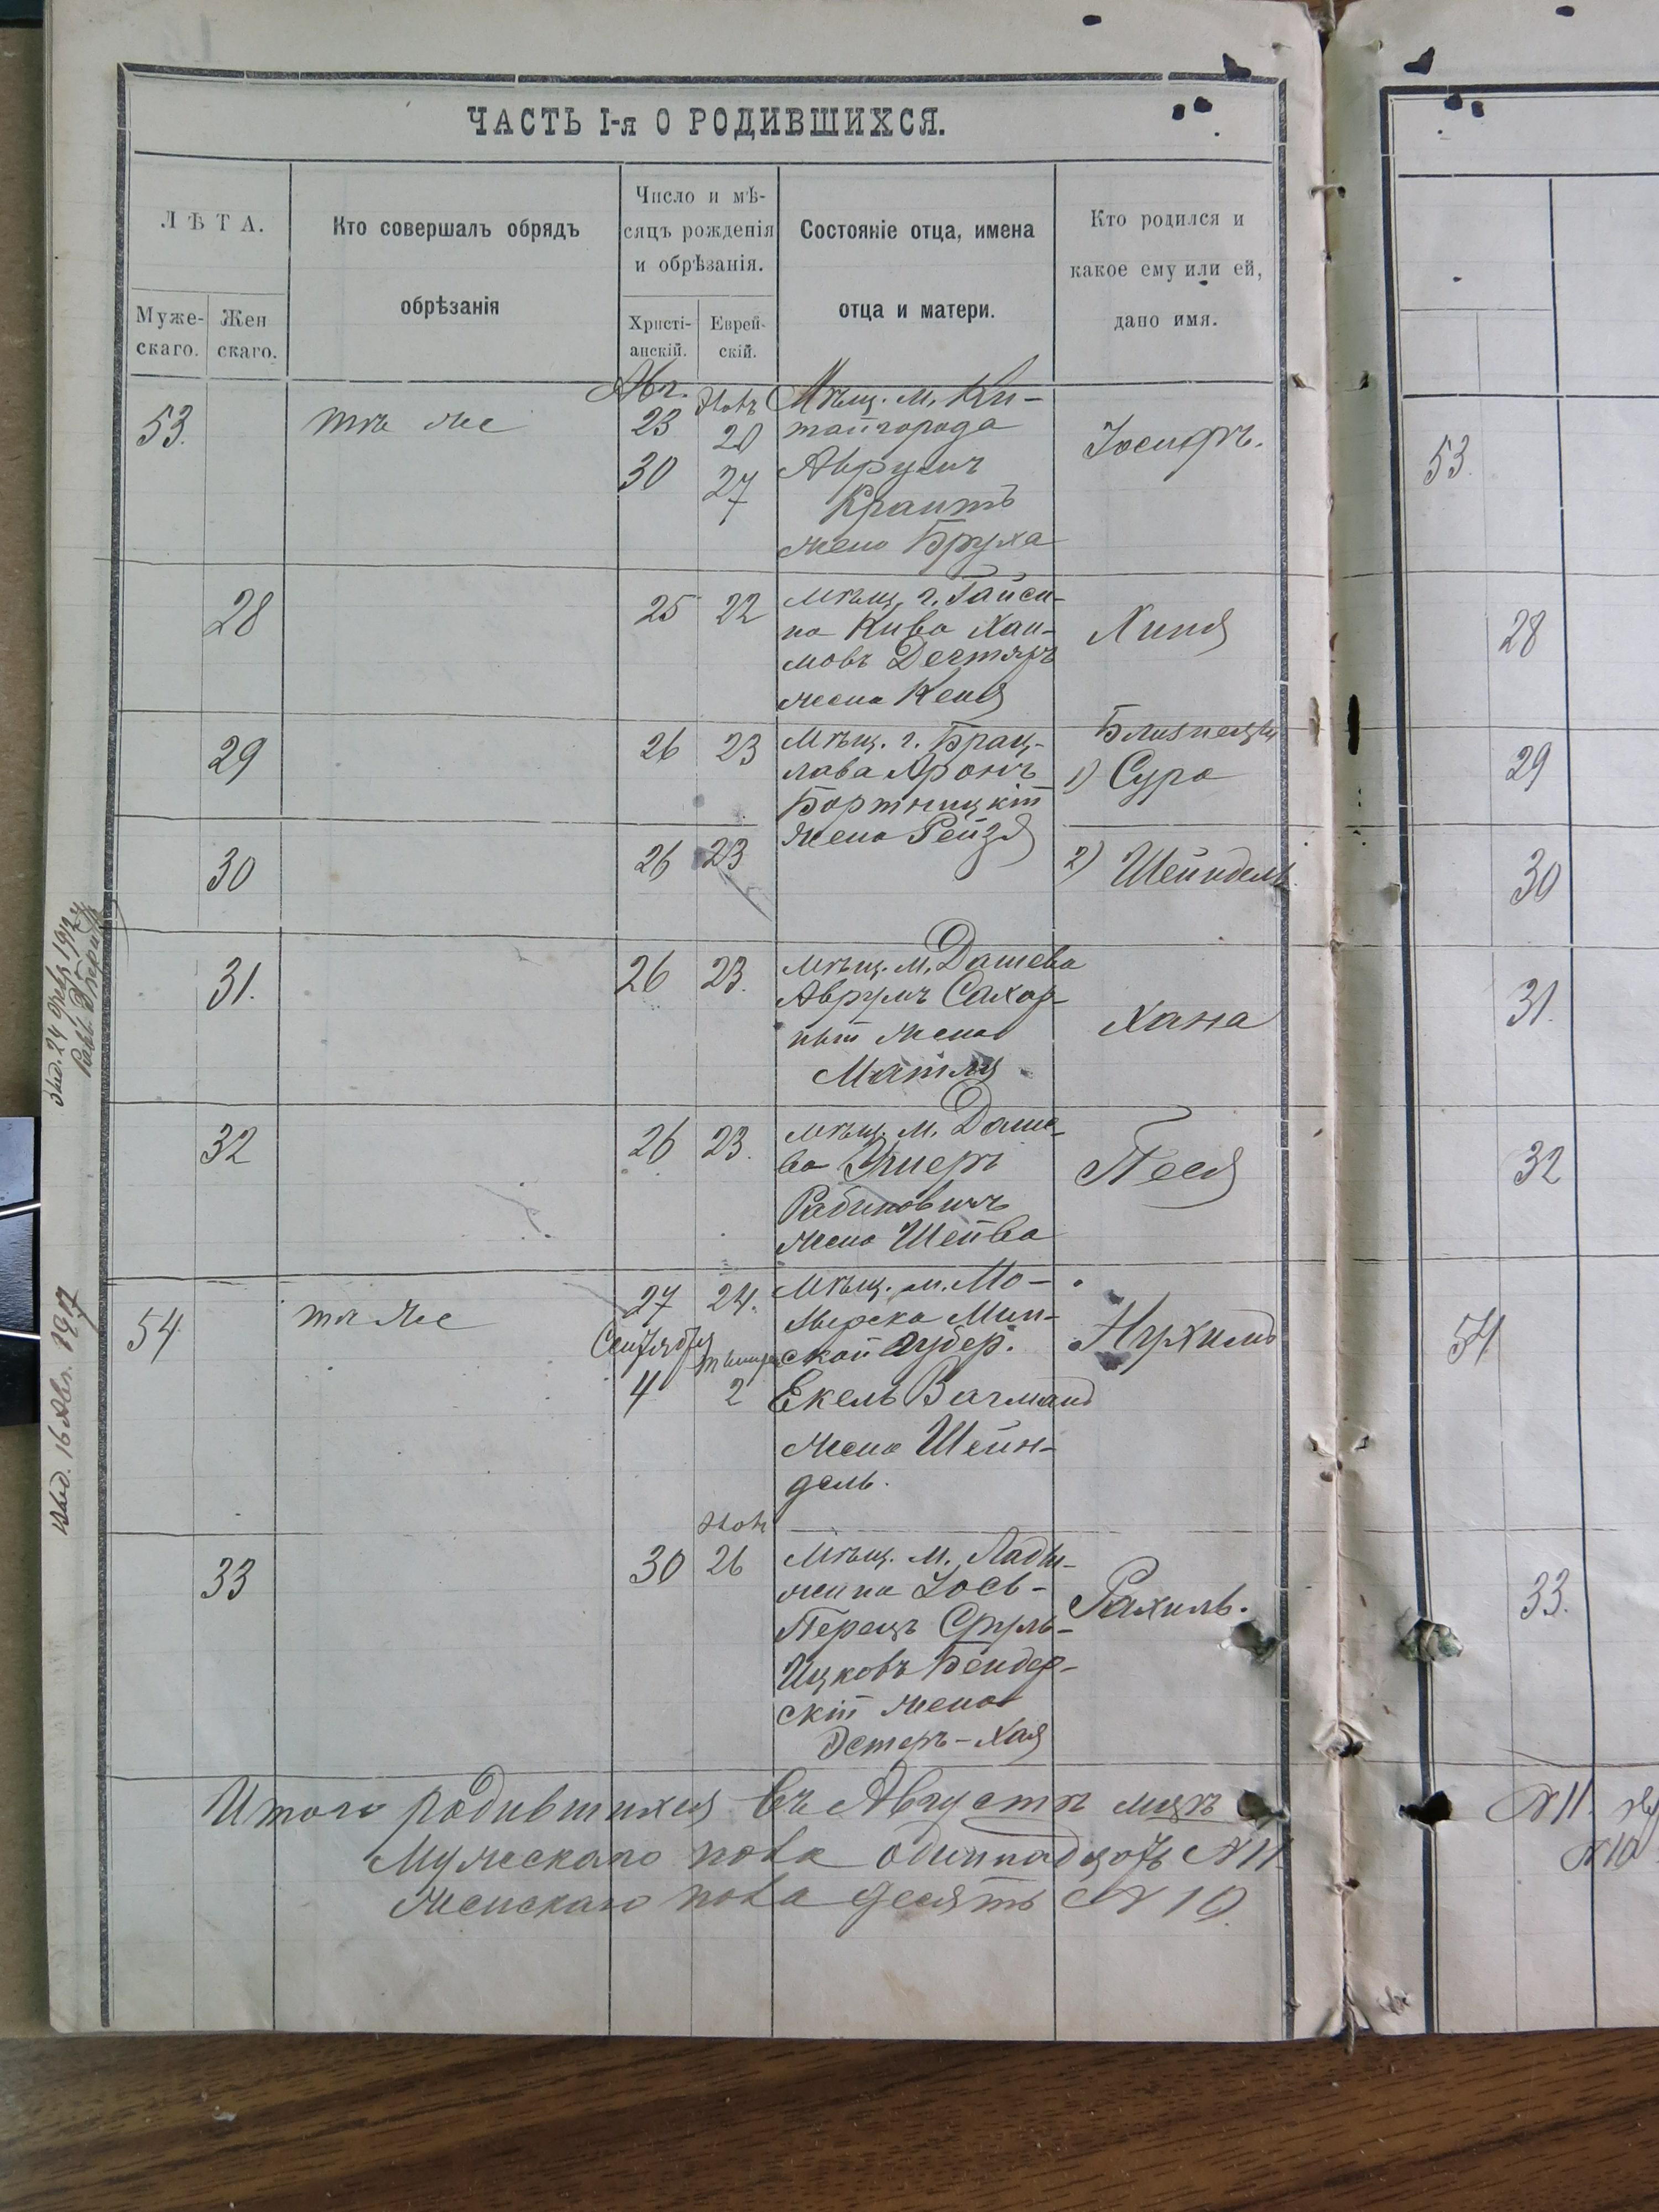 ЧАСТЬ I-я О РОДИВШИХСЯ.
ЛѢТА.
Муже-
скаго.
Жен
скаго.
Кто совершалъ обрядъ
обрѣзанія
Число и мѣ-
сяцъ рожденія
и обрѣзанія.
Христі-
анскій.
Еврей-
скій.
Состояніе отца, имена
отца и матери.
Кто родился и
какое ему или ей,
дано имя.
53.
тѣ же
Авг.
23
30
20
27
Мѣщ. м. Ки-
тайгорода
Аврумъ
Крантъ
жена Бруха
Іосифъ.
28
25
22
Мѣщ. г. Гайси-
на Кива Хаи-
мовъ Дегтярь
жена Кеня
Хиня
29
26
23
Мѣщ. г. Брац-
лава Аронъ
Бортницкій
жена Рейзя
Близнецы
1) Сура
30
26
23
2) Шейндель
31.
26
23.
Мѣщ. м. Дашева
Аврумъ Сахор-
ный жена
Матля
Хана
32
26
23.
Мѣщ. м. Даше-
ва
Рабиновичъ
жена Шейва
Песя
54
тѣ же
27
24.
Сентября
4
2
Мѣщ. м. Мо-
Мин-
ской губер.
Екель
жена Шейн-
дель.
Нухимъ
33
30
26
Мѣщ. м. Лады-
жина Іось-
Перецъ Сруль-
Ицковъ Бендер-
скій жена
Эстеръ-Хая
Рахиль.
Итого родившихся въ Августѣ мцѣ
Мужескаго пола одиннадцать N 11.
Женскаго пола десять N 10.
Выд. 16 Авг. 1917
53.
28
29
30
31.
32
54
33.
N 11.
N 10